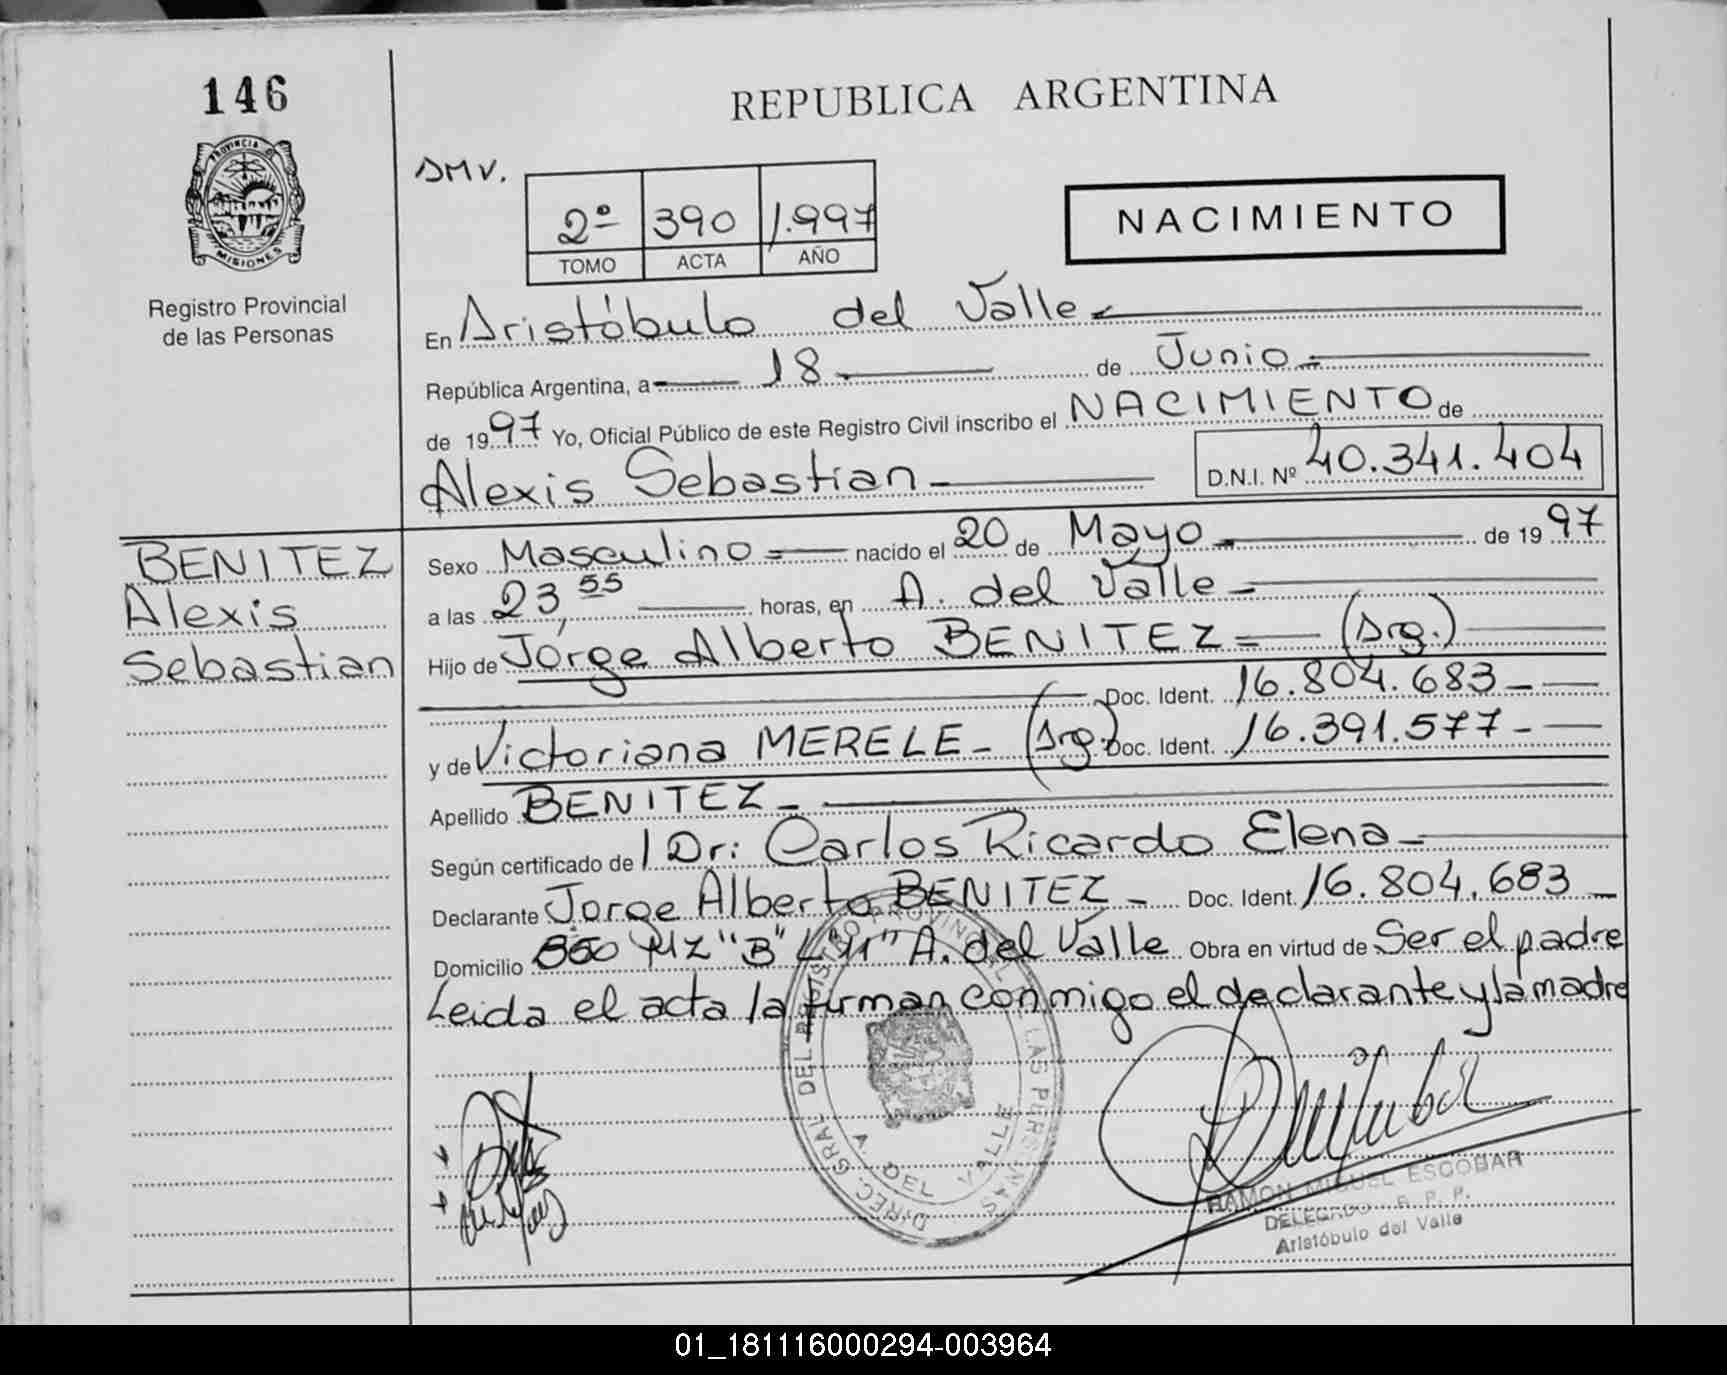 146
REPUBLICA ARGENTINA
PROVINCIA DE
MISIONES
Registro Provincial
de las Personas
DMV.
2º 390 1.997
TOMO ACTA AÑO
NACIMIENTO
En Aristóbulo del Valle
República Argentina, a 18 de Junio
de 1997 Yo, Oficial Público de este Registro Civil inscribo el NACIMIENTO de
Alexis Sebastian D.N.I. Nº 40.341.404
BENITEZ
Alexis
Sebastian
Sexo Masculino nacido el 20 de Mayo de 1997
a las 23,55 horas, en A. del Valle
Hijo de Jorge Alberto BENITEZ (Arg.)
Doc. Ident. 16.804.683
y de Victoriana MERELE (Arg.) Doc. Ident. 16.391.577
Apellido BENITEZ
Según certificado de Dr: Carlos Ricardo Elena
Declarante Jorge Alberto BENITEZ Doc. Ident. 16.804.683
Domicilio MZ "B" A. del Valle Obra en virtud de Ser el padre
Leida el acta la firman conmigo el declarante y la madre
DIREC. GRAL. DEL REGISTRO PROVINCIAL DE LAS PERSONAS
A. DEL VALLE
RAMON MIGUEL ESCOBAR
DELEGADO R. P. P.
Aristóbulo del Valle
01_181116000294-003964